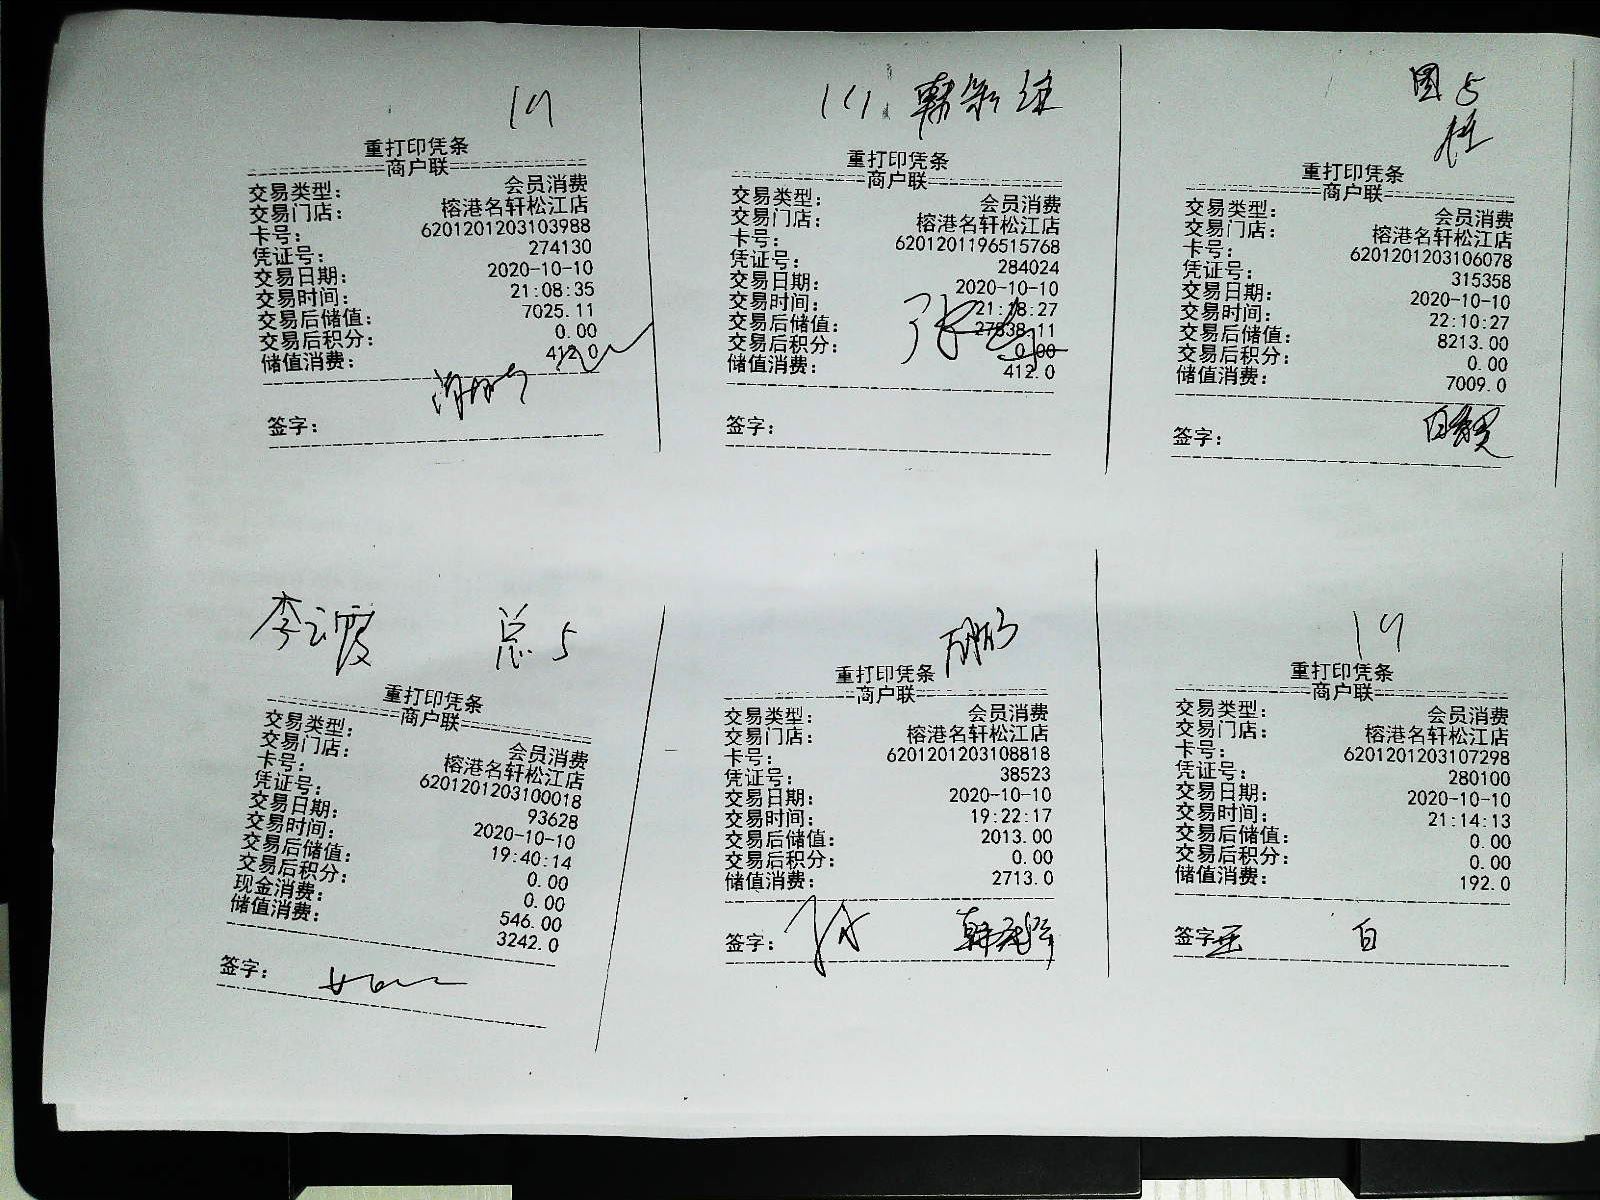 重打印凭条
商户联
交易类型: 会员消费
交易门店: 榕港名轩松江店
卡号: 6201201203103988
凭证号: 274130
交易日期: 2020-10-10
交易时间: 21:08:35
交易后储值: 7025.11
交易后积分: 0.00
储值消费: 412.0
签字:
重打印凭条
商户联
交易类型: 会员消费
交易门店: 榕港名轩松江店
卡号: 6201201196515768
凭证号: 284024
交易日期: 2020-10-10
交易时间: 21:18:27
交易后储值: 27838.11
交易后积分: 0.00
储值消费: 412.0
签字:
重打印凭条
商户联
交易类型: 会员消费
交易门店: 榕港名轩松江店
卡号: 6201201203106078
凭证号: 315358
交易日期: 2020-10-10
交易时间: 22:10:27
交易后储值: 8213.00
交易后积分: 0.00
储值消费: 7009.0
签字:
李云霞 总5
重打印凭条
商户联
交易类型: 会员消费
交易门店: 榕港名轩松江店
卡号: 6201201203100018
凭证号: 93628
交易日期: 2020-10-10
交易时间: 19:40:14
交易后储值: 0.00
交易后积分: 0.00
现金消费: 546.00
储值消费: 3242.0
签字:
重打印凭条
商户联
交易类型: 会员消费
交易门店: 榕港名轩松江店
卡号: 6201201203108818
凭证号: 38523
交易日期: 2020-10-10
交易时间: 19:22:17
交易后储值: 2013.00
交易后积分: 0.00
储值消费: 2713.0
签字:
重打印凭条
商户联
交易类型: 会员消费
交易门店: 榕港名轩松江店
卡号: 6201201203107298
凭证号: 280100
交易日期: 2020-10-10
交易时间: 21:14:13
交易后储值: 0.00
交易后积分: 0.00
储值消费: 192.0
签字 白